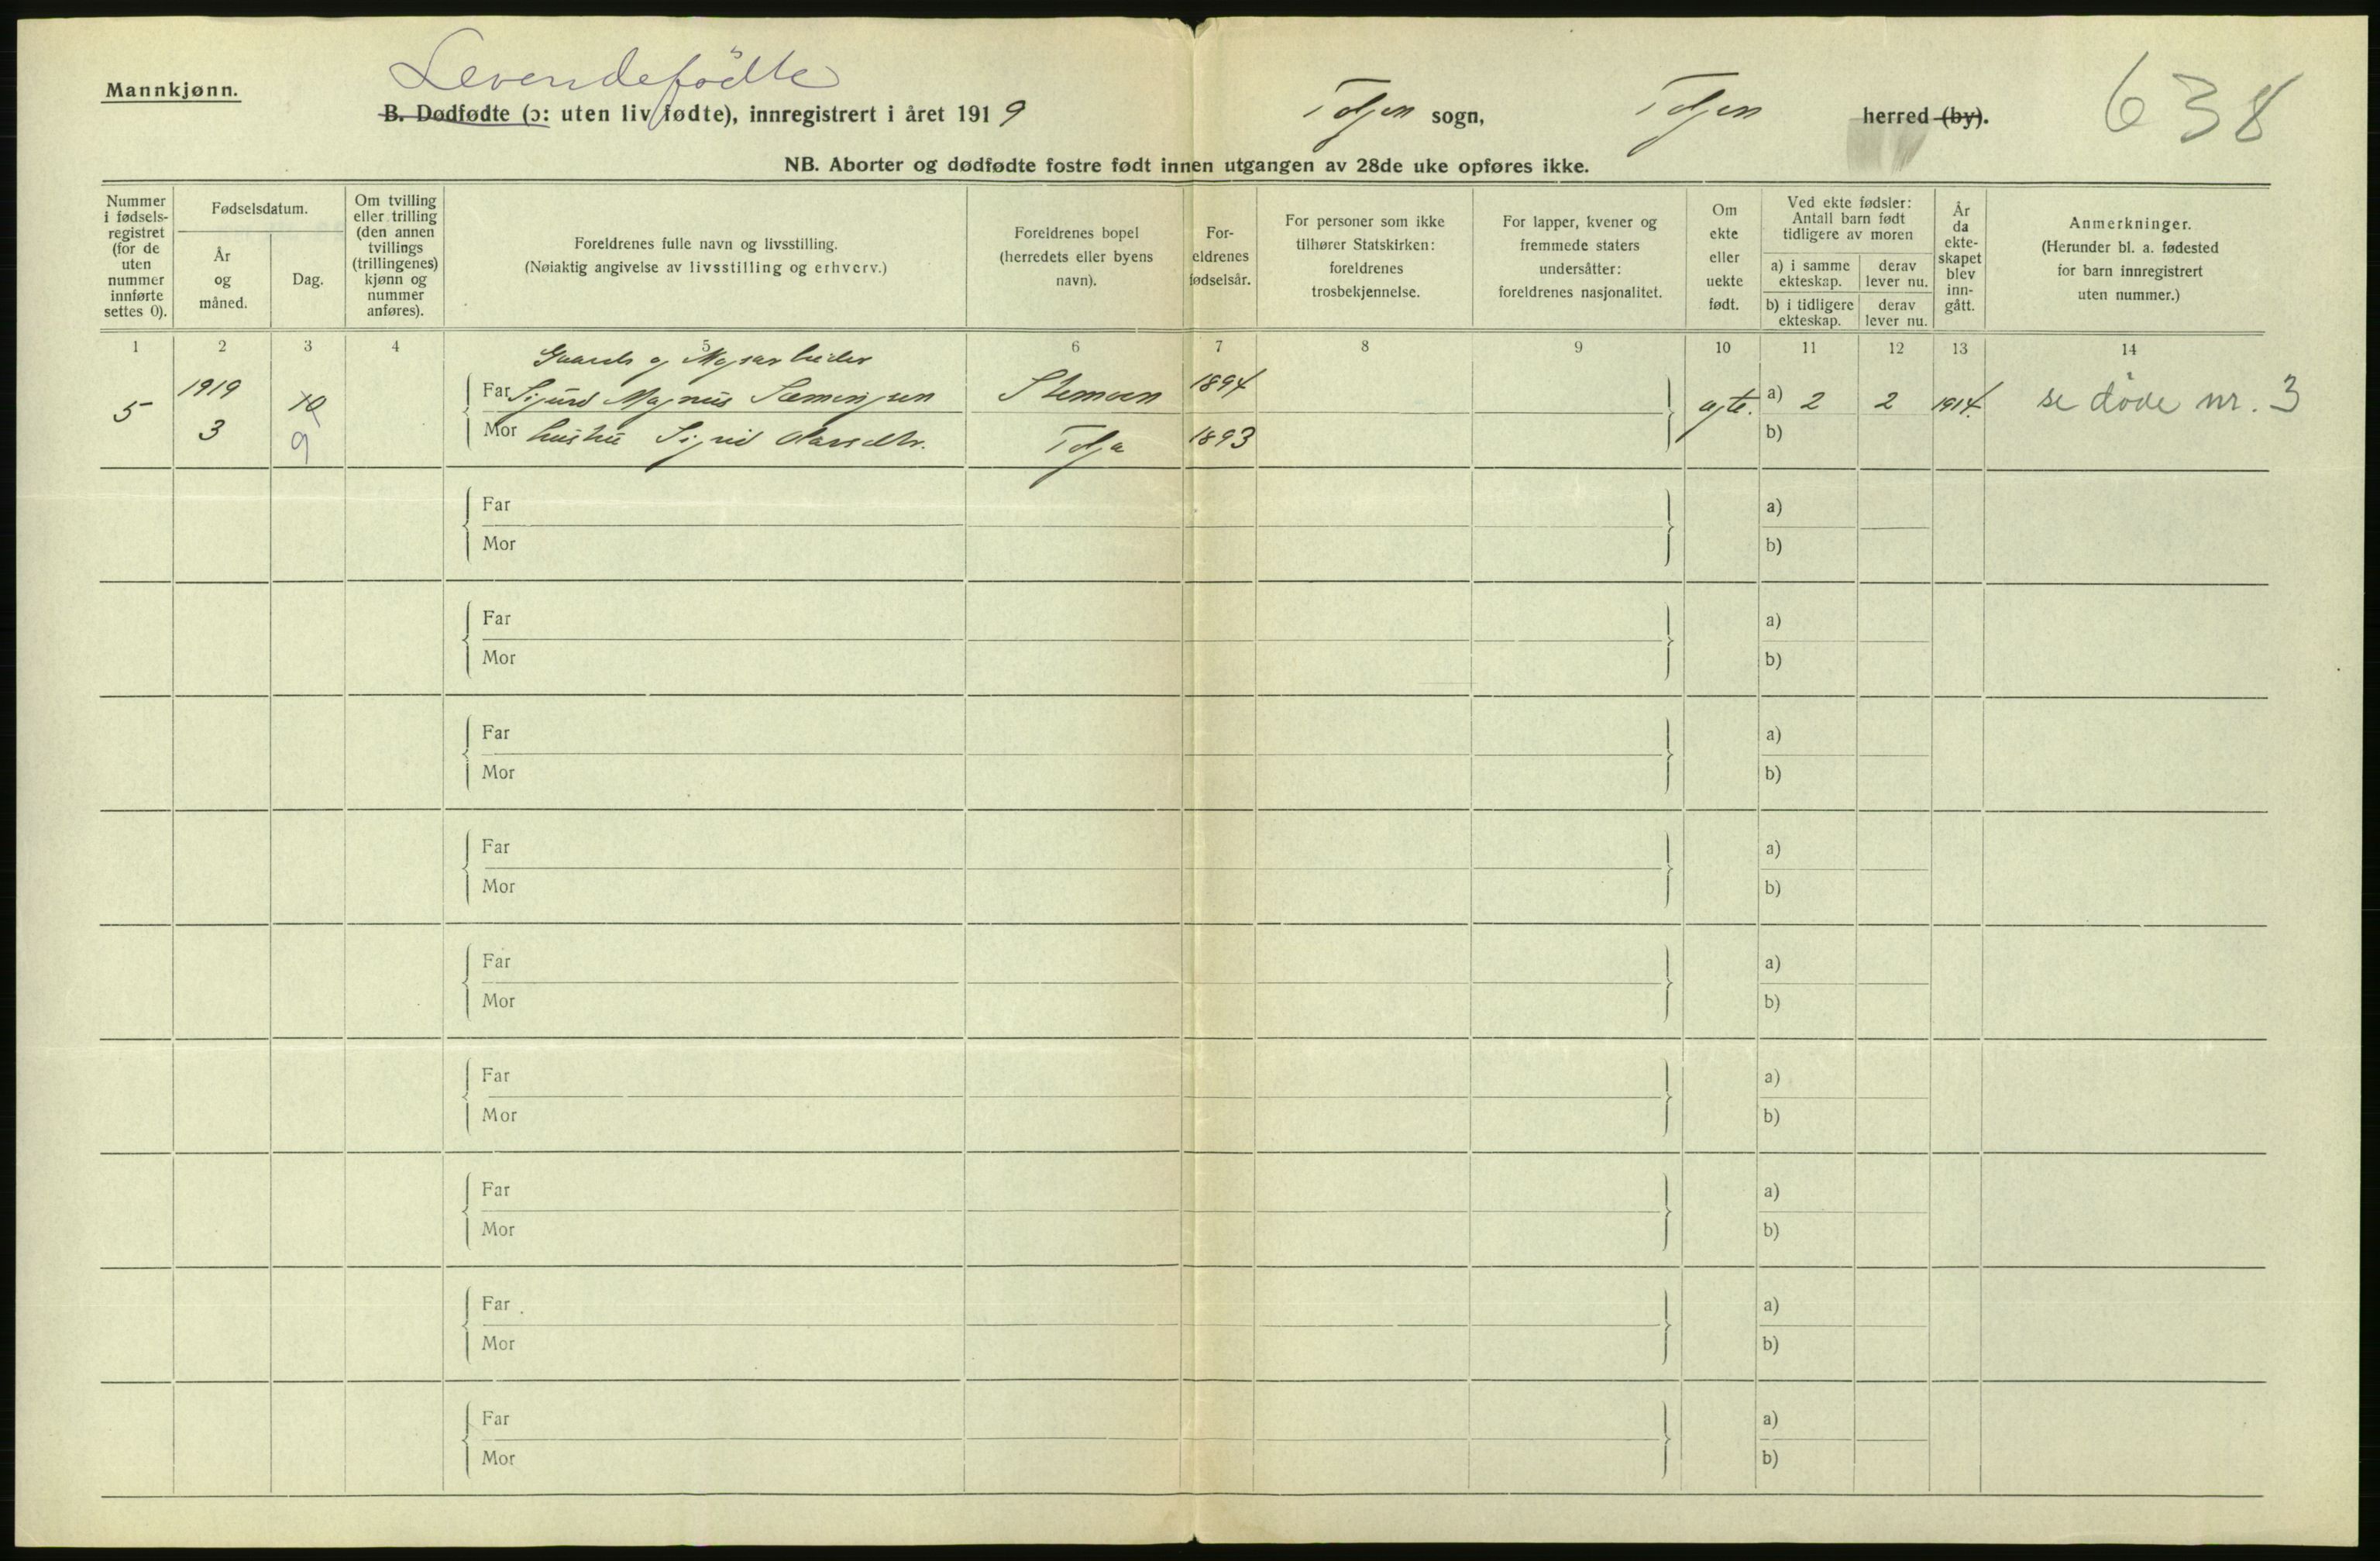 Mannkjønn.
Levendefödte
B. Dødfødte (ɔ: uten liv fødte), innregistrert i året 1919
Tolgen sogn,
Tolgen herred (by).
638
NB. Aborter og dødfødte fostre født innen utgangen av 28de uke opføres ikke.
Nummer
i fødsels-
registret
(for de
uten
nummer
innførte
settes 0).
Fødselsdatum.
År
og
måned.
Dag.
Om tvilling
eller trilling
(den annen
tvillings
(trillingenes)
kjønn og
nummer
anføres).
Foreldrenes fulle navn og livsstilling.
(Nøiaktig angivelse av livsstilling og erhverv.)
Foreldrenes bopel
(herredets eller byens
navn).
For-
eldrenes
fødselsår.
For personer som ikke
tilhører Statskirken:
foreldrenes
trosbekjennelse.
For lapper, kvener og
fremmede staters
undersåtter:
foreldrenes nasjonalitet.
Om
ekte
eller
uekte
født.
Ved ekte fødsler:
Antall barn født
tidligere av moren
a) i samme
ekteskap.
derav
lever nu.
b) i tidligere
ekteskap.
derav
lever nu.
År
da
ekte-
skapet
blev
inn-
gått.
Anmerkninger.
(Herunder bl. a. fødested
for barn innregistrert
uten nummer.)
1 2 3 4 5 6 7 8 9 10 11 12 13 14
Gaards og
5 1919 10 Far Sigurd Magnus 1894 a) 2 2 1914. se døde nr. 3
3 9 Mor Sigrid Tolga 1893 b)
Far a)
Mor b)
Far a)
Mor b)
Far a)
Mor b)
Far a)
Mor b)
Far a)
Mor b)
Far a)
Mor b)
Far a)
Mor b)
Far a)
Mor b)
Far a)
Mor b)